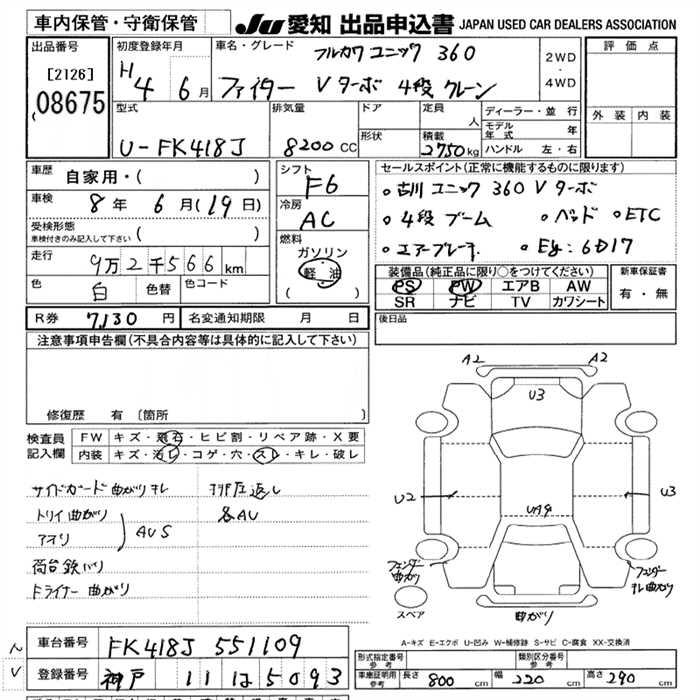 車内保管・守衛保管
JU 愛知 出品申込書 JAPAN USED CAR DEALERS ASSOCIATION
出品番号
[2126]
08675
初度登録年月
H4 6月
車名・グレード
フルカワ ユニック 360
ファイター Vターボ 4段 クレーン
2WD
・
4WD
評価点
外装 内装
型式
U-FK418J
排気量
8200 CC
ドア
形状
定員
人
積載
2750 kg
ディーラー・並行
モデル年式 年
ハンドル 左・右
車歴 自家用・( )
車検 8年 6月(19日)
受検形態
車検付きのみ記入して下さい ( )
走行 9万2千566 km
色 白 色替 色コード
シフト
F6
冷房
AC
燃料
ガソリン
軽油
( )
セールスポイント(正常に機能するものに限ります)
○古川 ユニック 360 Vターボ
○4段 ブーム ○ベッド ○ETC
○エアーブレーキ. ○Eg:6D17
装備品(純正品に限り○をつけてください)
PS PW エアB AW
SR ナビ TV カワシート
新車保証書
有・無
R券 7,130 円 名変通知期限 月 日
後日品
注意事項申告欄(不具合内容等は具体的に記入して下さい)
修復歴 有 [箇所
検査員
記入欄
FW キズ・飛石・ヒビ割・リペア跡・X要
内装 キズ・汚レ・コゲ・穴・スレ・キレ・破レ
サイドガード曲がりキレ
トリイ曲がり
アオリ
AUS
荷台鉄バリ
Fライナー曲がり
&AU
A2 A2
U3
U2 U3
フェンダー曲がり
フェンダーキレ曲がり
スペア
曲がり
A-キズ E-エクボ U-凹み W-補修跡 S-サビ C-腐食 XX-交換済
車台番号 FK418J 551109
登録番号 神戸 11 は 5093
型式指定番号
参考
類別区分番号
参考
車庫証明用
参考
長さ 800 cm 幅 220 cm 高さ 290 cm